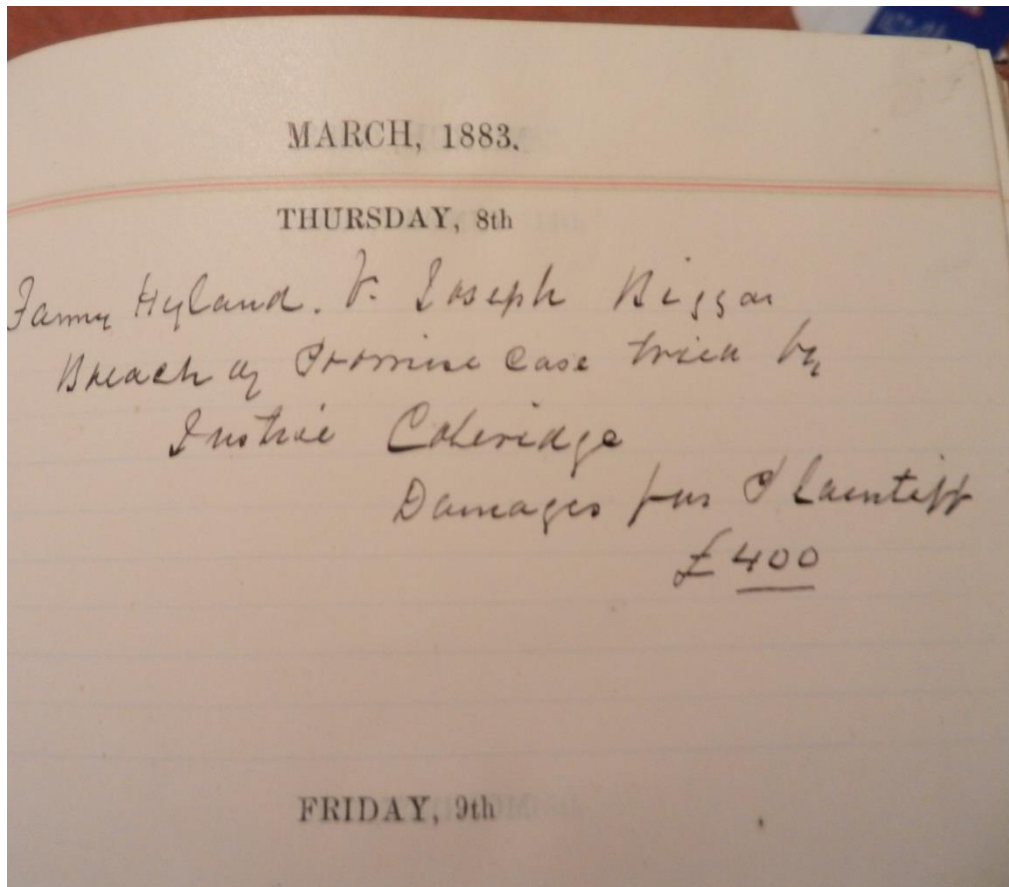 MARCH, 1883.
THURSDAY, 8th
Fanny Hyland. V. Joseph Biggar
Breach of Promise Case tried by
Justice Coleridge
Damages for Plaintiff
£400
FRIDAY, 9th